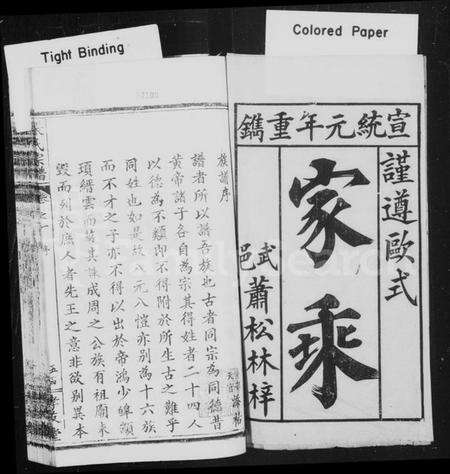 Tight Binding
Colored Paper
宣統元年重鐫
謹遵歐式
家乘
武邑
蕭松林梓
族譜序
譜者所以譜吾族也古者同宗為同德昔
黃帝諸子各自為宗其得姓者二十四人
以德為不類即不得附於所生古之難乎
同姓也如是故八元八愷亦別為十六族
而不才之子亦不得以出於帝鴻少皞顓
頊縉雲而蔣其誅成周之公族有祖廟未
毀而列於庶人者先王之意非欲別異本